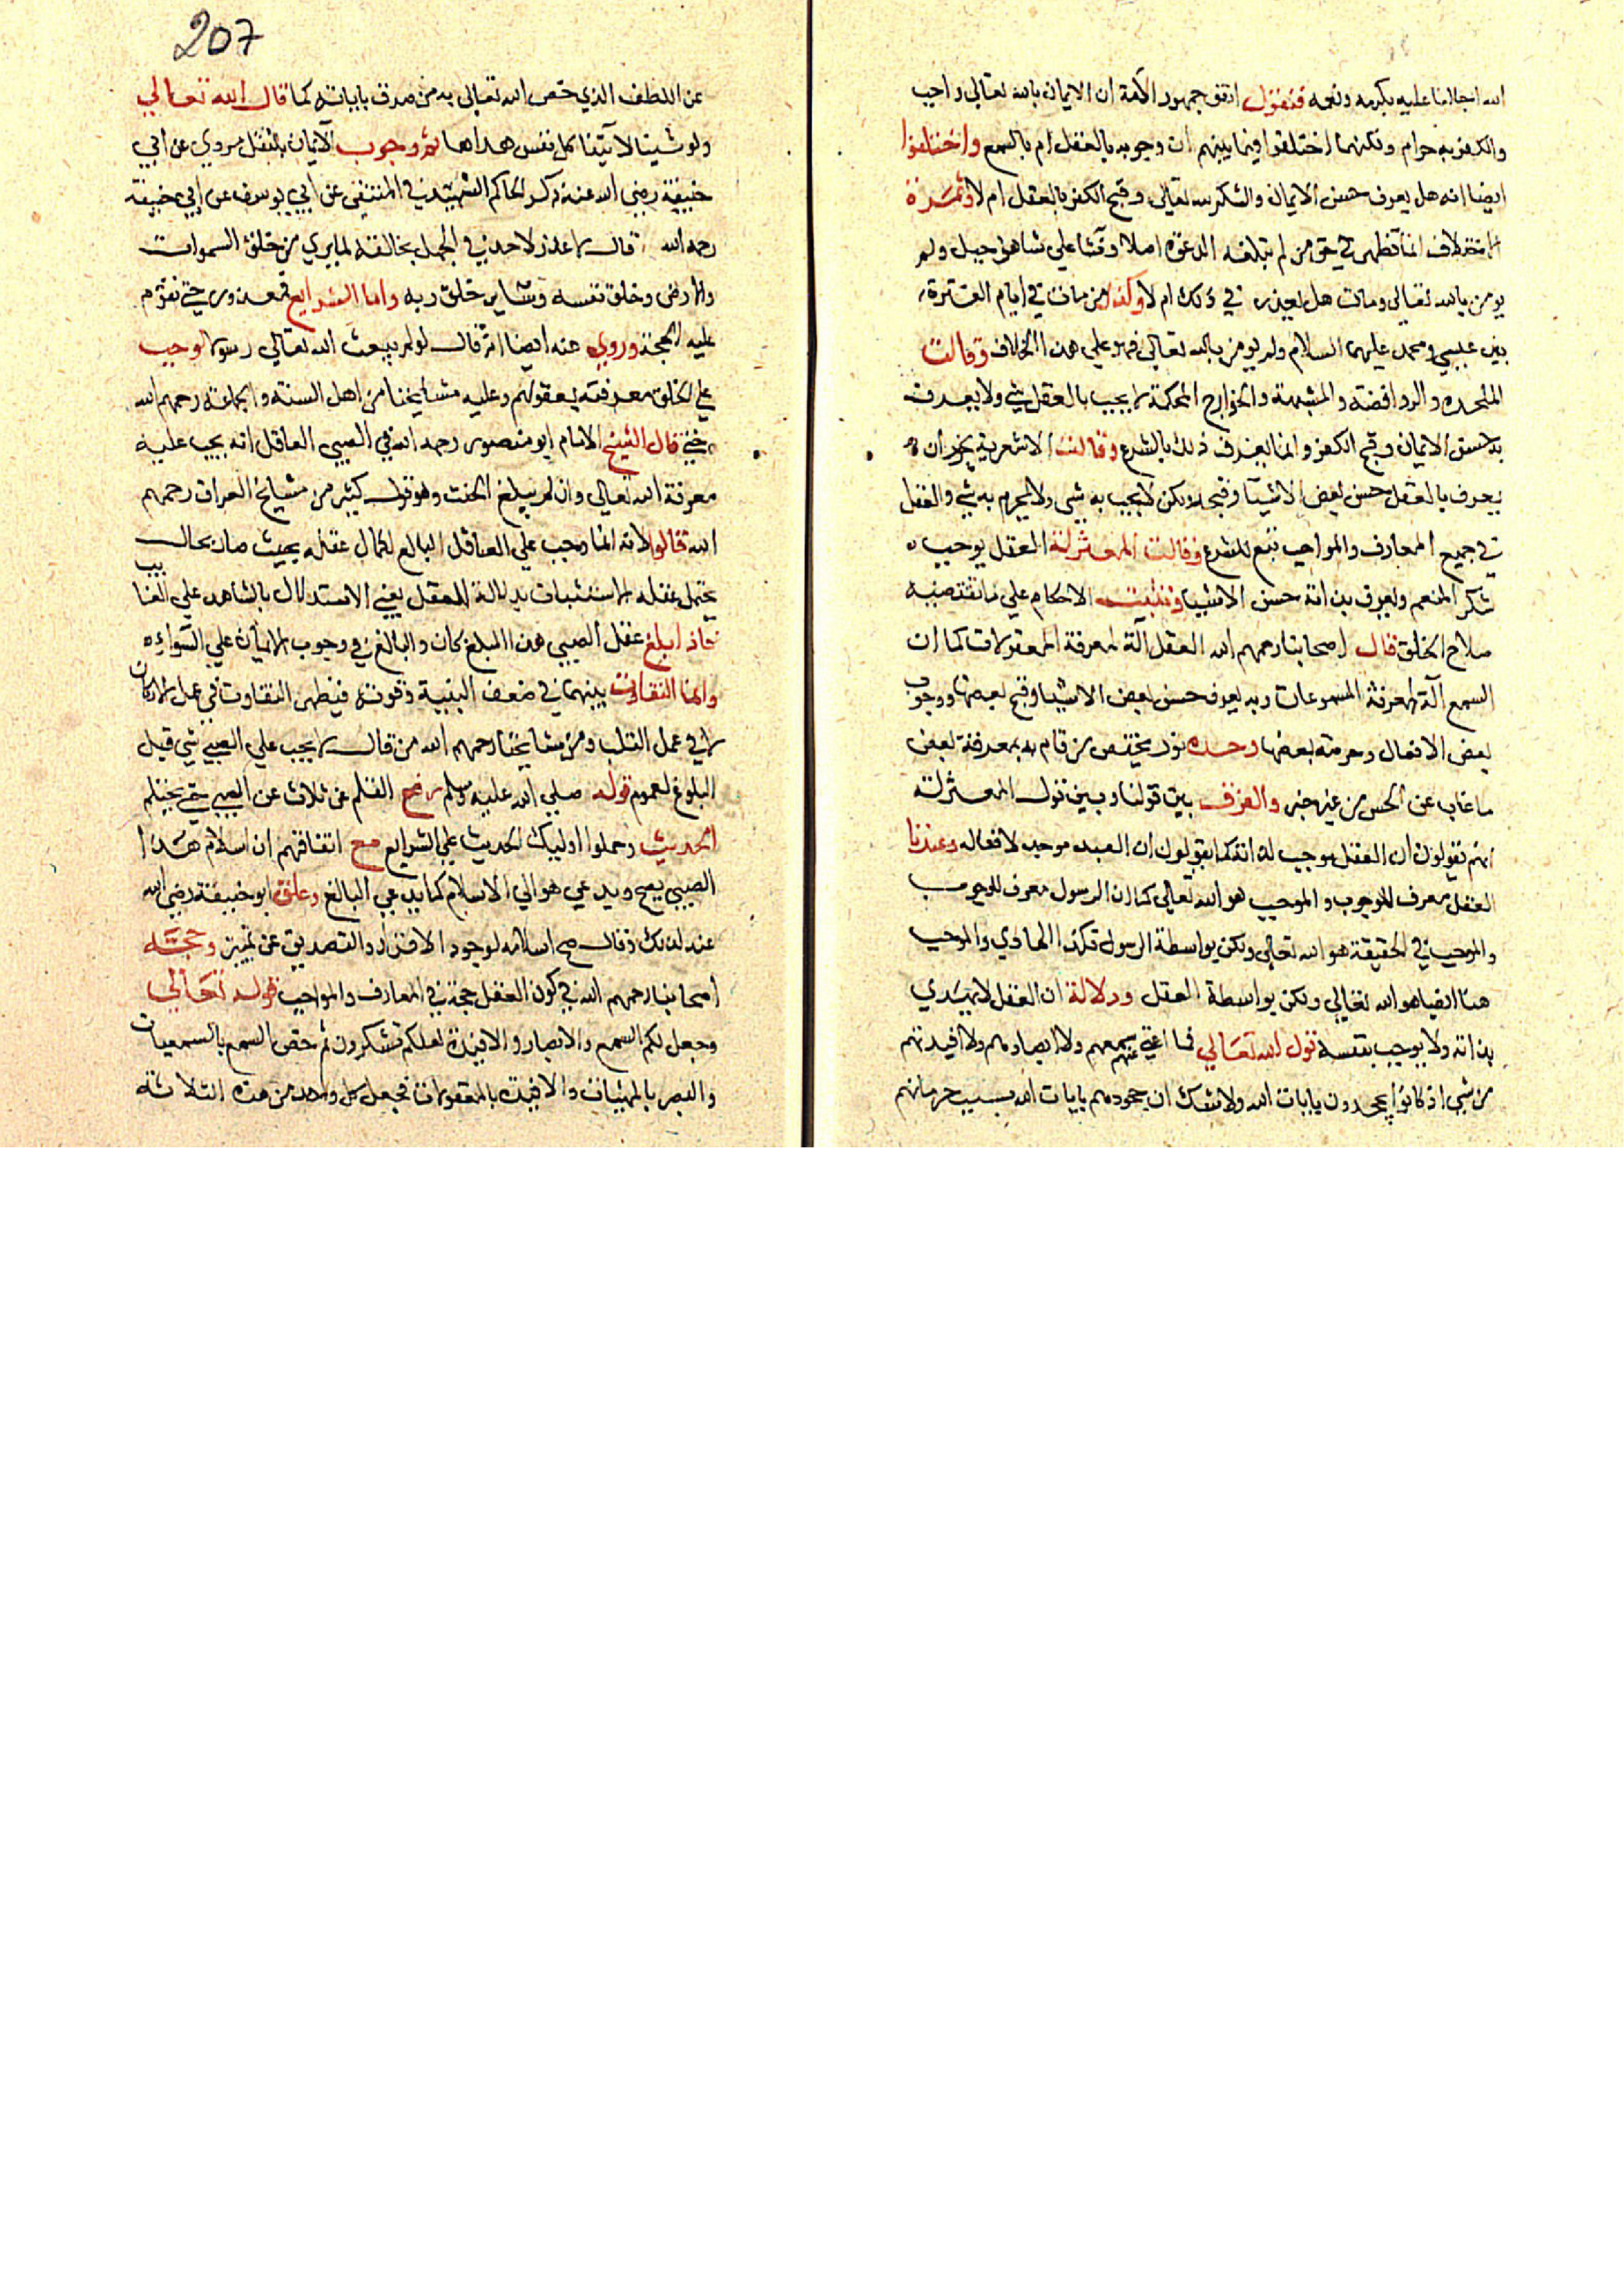 الله اجلالنا عليه بكرمه ونعمه فنقول اتفق جمهور الامة ان الايمان بالله تعالى واجب
والكفر به حرام ولكنهما اختلفوا فيما بينهم ان وجوبه بالعقل ام بالسمع واختلفوا
ايضا انه هل يعرف حسن الايمان والشكر لله تعالى وقبح الكفر بالعقل ام لا وثمرة
الاختلاف انما تظهر في حق من لم تبلغه الدعوة اصلا ونشا على شاهق جبل ولم
يومن بالله تعالى ومات هل يعذر في ذلك ام لا وكذا من مات في ايام الفترة
بين عيسى ومحمد عليهما السلام ولم يومن بالله تعالى فهو على هذا الخلاف وقالت
الملحده والروافضة والمشبهة والخوارج المحكمة لا يجب بالعقل شي ولا يعرف
به حسن الايمان وقبح الكفر وانما يعرف ذلك بالشرع وقالت الاشعرية يجوز ان
يعرف بالعقل حسن بعض الاشيا وقبحه ولكن لا يجب به شي ولا يحرم به شي والعقل
في جميع المعارف والمواجب تبع للشرع وقالت المعتزلة العقل يوجب
شكر المنعم ويعرف بذاته حسن الاشيا ويثبت الاحكام على ما تقتضيه
صلاح الخلق قال اصحابنا رحمهم الله العقل آلة لمعرفة المعقولات كما ان
السمع آلة لمعرفة المسموعات وبه يعرف حسن بعض الاشيا وقبح بعضها ووجوب
بعض الافعال وحرمته بعضها وحده نور يختص من قام به بمعرفة بعض
ما غاب عن الحس من غير خبر والفرق بين قولنا وبين قول المعتزلة
انهم يقولون ان العقل موجب لذاته كما يقولون ان العبد موجد لافعاله وعندنا
العقل معرف للوجوب والموجب هو الله تعالى كما ان الرسول معرف للوجوب
والموجب في الحقيقة هو الله تعالى ولكن بواسطة الرسول فكذا الهادي والموجب
هنا ايضا هو الله تعالى ولكن بواسطة العقل ودلالة ان العقل لا يهدي
بذاته ولا يوجب بنفسه قول الله تعالى فما اغنى عنهم سمعهم ولا ابصارهم ولا افيدتهم
من شي اذ كانوا يجحدون بايات الله ولا شك ان جحودهم بايات الله بسبب حرمانهم
207
عن اللطف الذي خص الله تعالى به من صدق باياته كما قال الله تعالى
ولو شينا لآتينا كل نفس هداها ثم وجوب الايمان بالعقل مروي عن ابي
حنيفة رضي الله عنه ذكر الحاكم الشهيد في المنتقى عن ابي يوسف عن ابي حنيفة
رحمه الله قال لا عذر لاحد في الجهل بخالقه لما يرى من خلق السموات
والارض وخلق نفسه وساير خلق ربه واما الشرايع فمعذور حتى تقوم
عليه الحجة وروي عنه ايضا انه قال لو لم يبعث الله تعالى رسولا وجب
على الخلق معرفته بعقولهم وعليه مشايخنا من اهل السنة والجماعة رحمهم الله
حتى قال الشيخ الامام ابو منصور رحمه الله في الصبي العاقل انه يجب عليه
معرفة الله تعالى وان لم يبلغ الحنث وهو قول كثير من مشايخ العراق رحمهم
الله قالوا لانه انما وجب على العاقل البالغ لكمال عقله بحيث صار بحال
يحتمل عقله الاستثبات بدلالة العقل يعني الاستدلال بالشاهد على الغا
يب
فاذا بلغ عقل الصبي هذا المبلغ كان والبالغ في وجوب الايمان على السواء
وانما التفاوت بينهما في ضعف البنية وقوته فيظهر التفاوت في عمل الاركان
لا في عمل القلب ومن مشايخنا رحمهم الله من قال لا يجب على الصبي شي قبل
البلوغ لعموم قوله صلى الله عليه وسلم رفع القلم عن ثلاث عن الصبي حتى يحتلم
الحديث وحملوا اوليك الحديث على الشرايع مع اتفاقهم ان اسلام هذا
الصبي يصح ويدعى هو الى الاسلام كما يدعى البالغ وعلق ابو حنيفة رضي الله
عنه لذلك وقال صح اسلامه لوجود الاقرار والتصديق عن تمييز وحجة
اصحابنا رحمهم الله في كون العقل حجة في المعارف والمواجب قوله تعالى
وجعل لكم السمع والابصار والافيدة لعلكم تشكرون ثم خص السمع بالسمعيات
والبصر بالمرئيات والافيدة بالمعقولات فجعل كل واحد من هذه الثلاثة